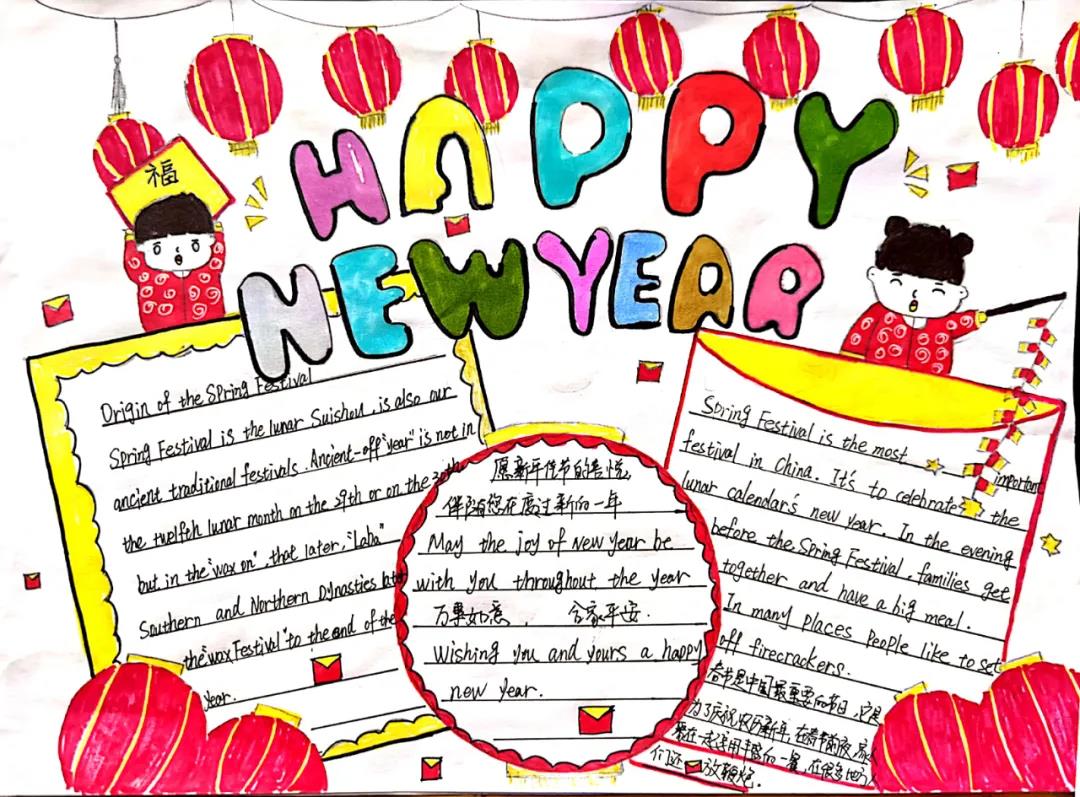 福
HAPPY
NEW YEAR
Origin of the Spring Festival
Spring Festival is the lunar Suishou, is also our
ancient traditional festivals. Ancient-off "year" is not in
the twelfth lunar month on the 29th or on the 30th
but in the "wax on", that later, "Laba"
Southern and Northern Dynasties later
the "wax Festival" to the end of the
year.
愿新年佳节的喜悦
伴随您在度过新的一年
May the joy of New year be
with you throughout the year
万事如意, 合家平安.
Wishing you and yours a happy
new year.
Spring Festival is the most important
festival in China. It's to celebrate the
lunar calendar's new year. In the evening
before the Spring Festival, families get
together and have a big meal.
In many places people like to set
off firecrackers.
春节是中国最重要的节日,它是
为了庆祝农历新年,在春节前夜,家
聚在一起享用丰盛的一餐,在很多地方
们还 放鞭炮.